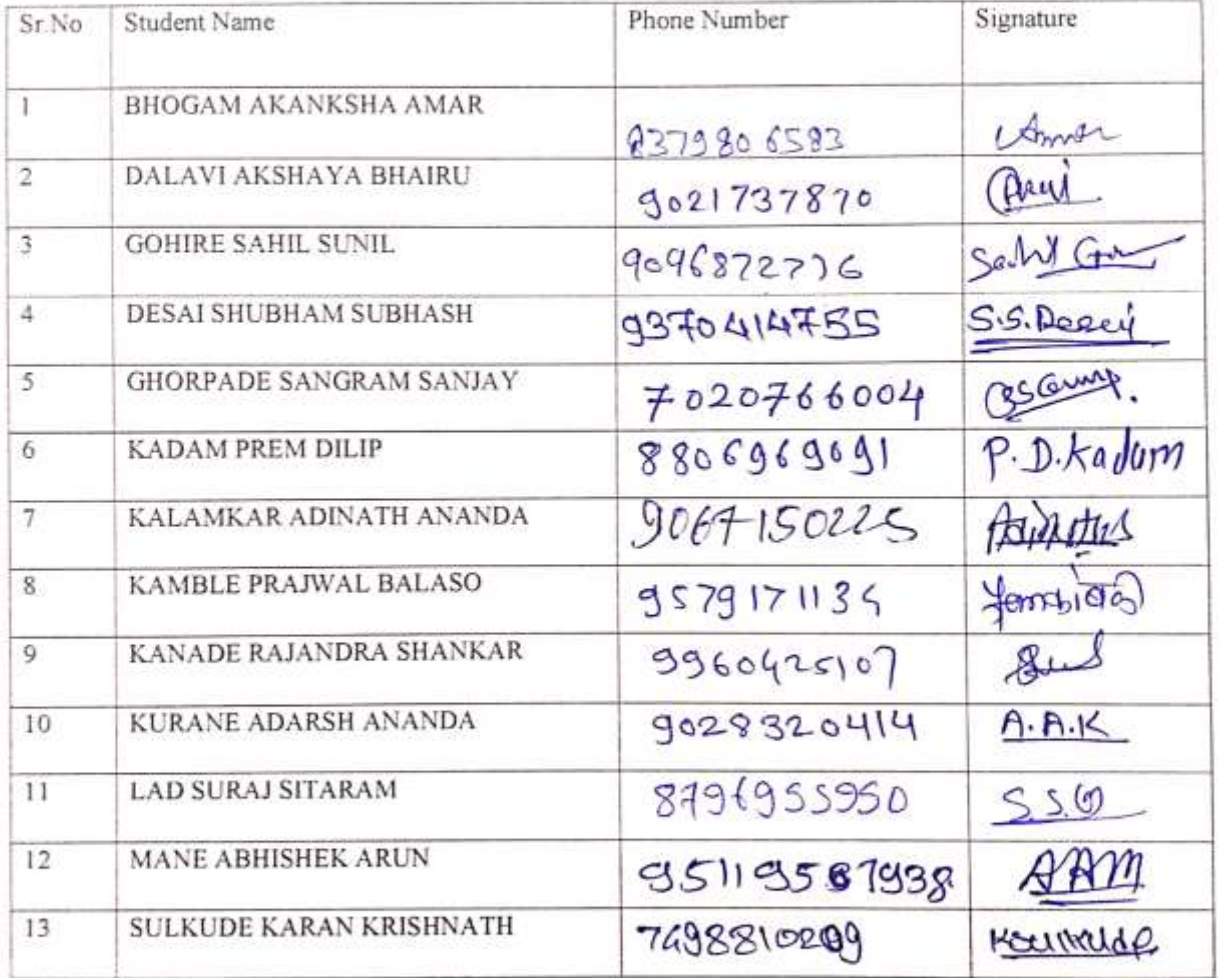 Sr.No Student Name Phone Number Signature
1 BHOGAM AKANKSHA AMAR 8379806583 Amar
2 DALAVI AKSHAYA BHAIRU 9021737870
3 GOHIRE SAHIL SUNIL 9096872776 Sahil
4 DESAI SHUBHAM SUBHASH 9370414755 S.S.Desai
5 GHORPADE SANGRAM SANJAY 7020766004
6 KADAM PREM DILIP 8806969691 P.D.Kadam
7 KALAMKAR ADINATH ANANDA 9067150225
8 KAMBLE PRAJWAL BALASO
9 KANADE RAJANDRA SHANKAR 9960425107
10 KURANE ADARSH ANANDA 9028320414 A.A.K
11 LAD SURAJ SITARAM 8796955950
12 MANE ABHISHEK ARUN AAM
13 SULKUDE KARAN KRISHNATH